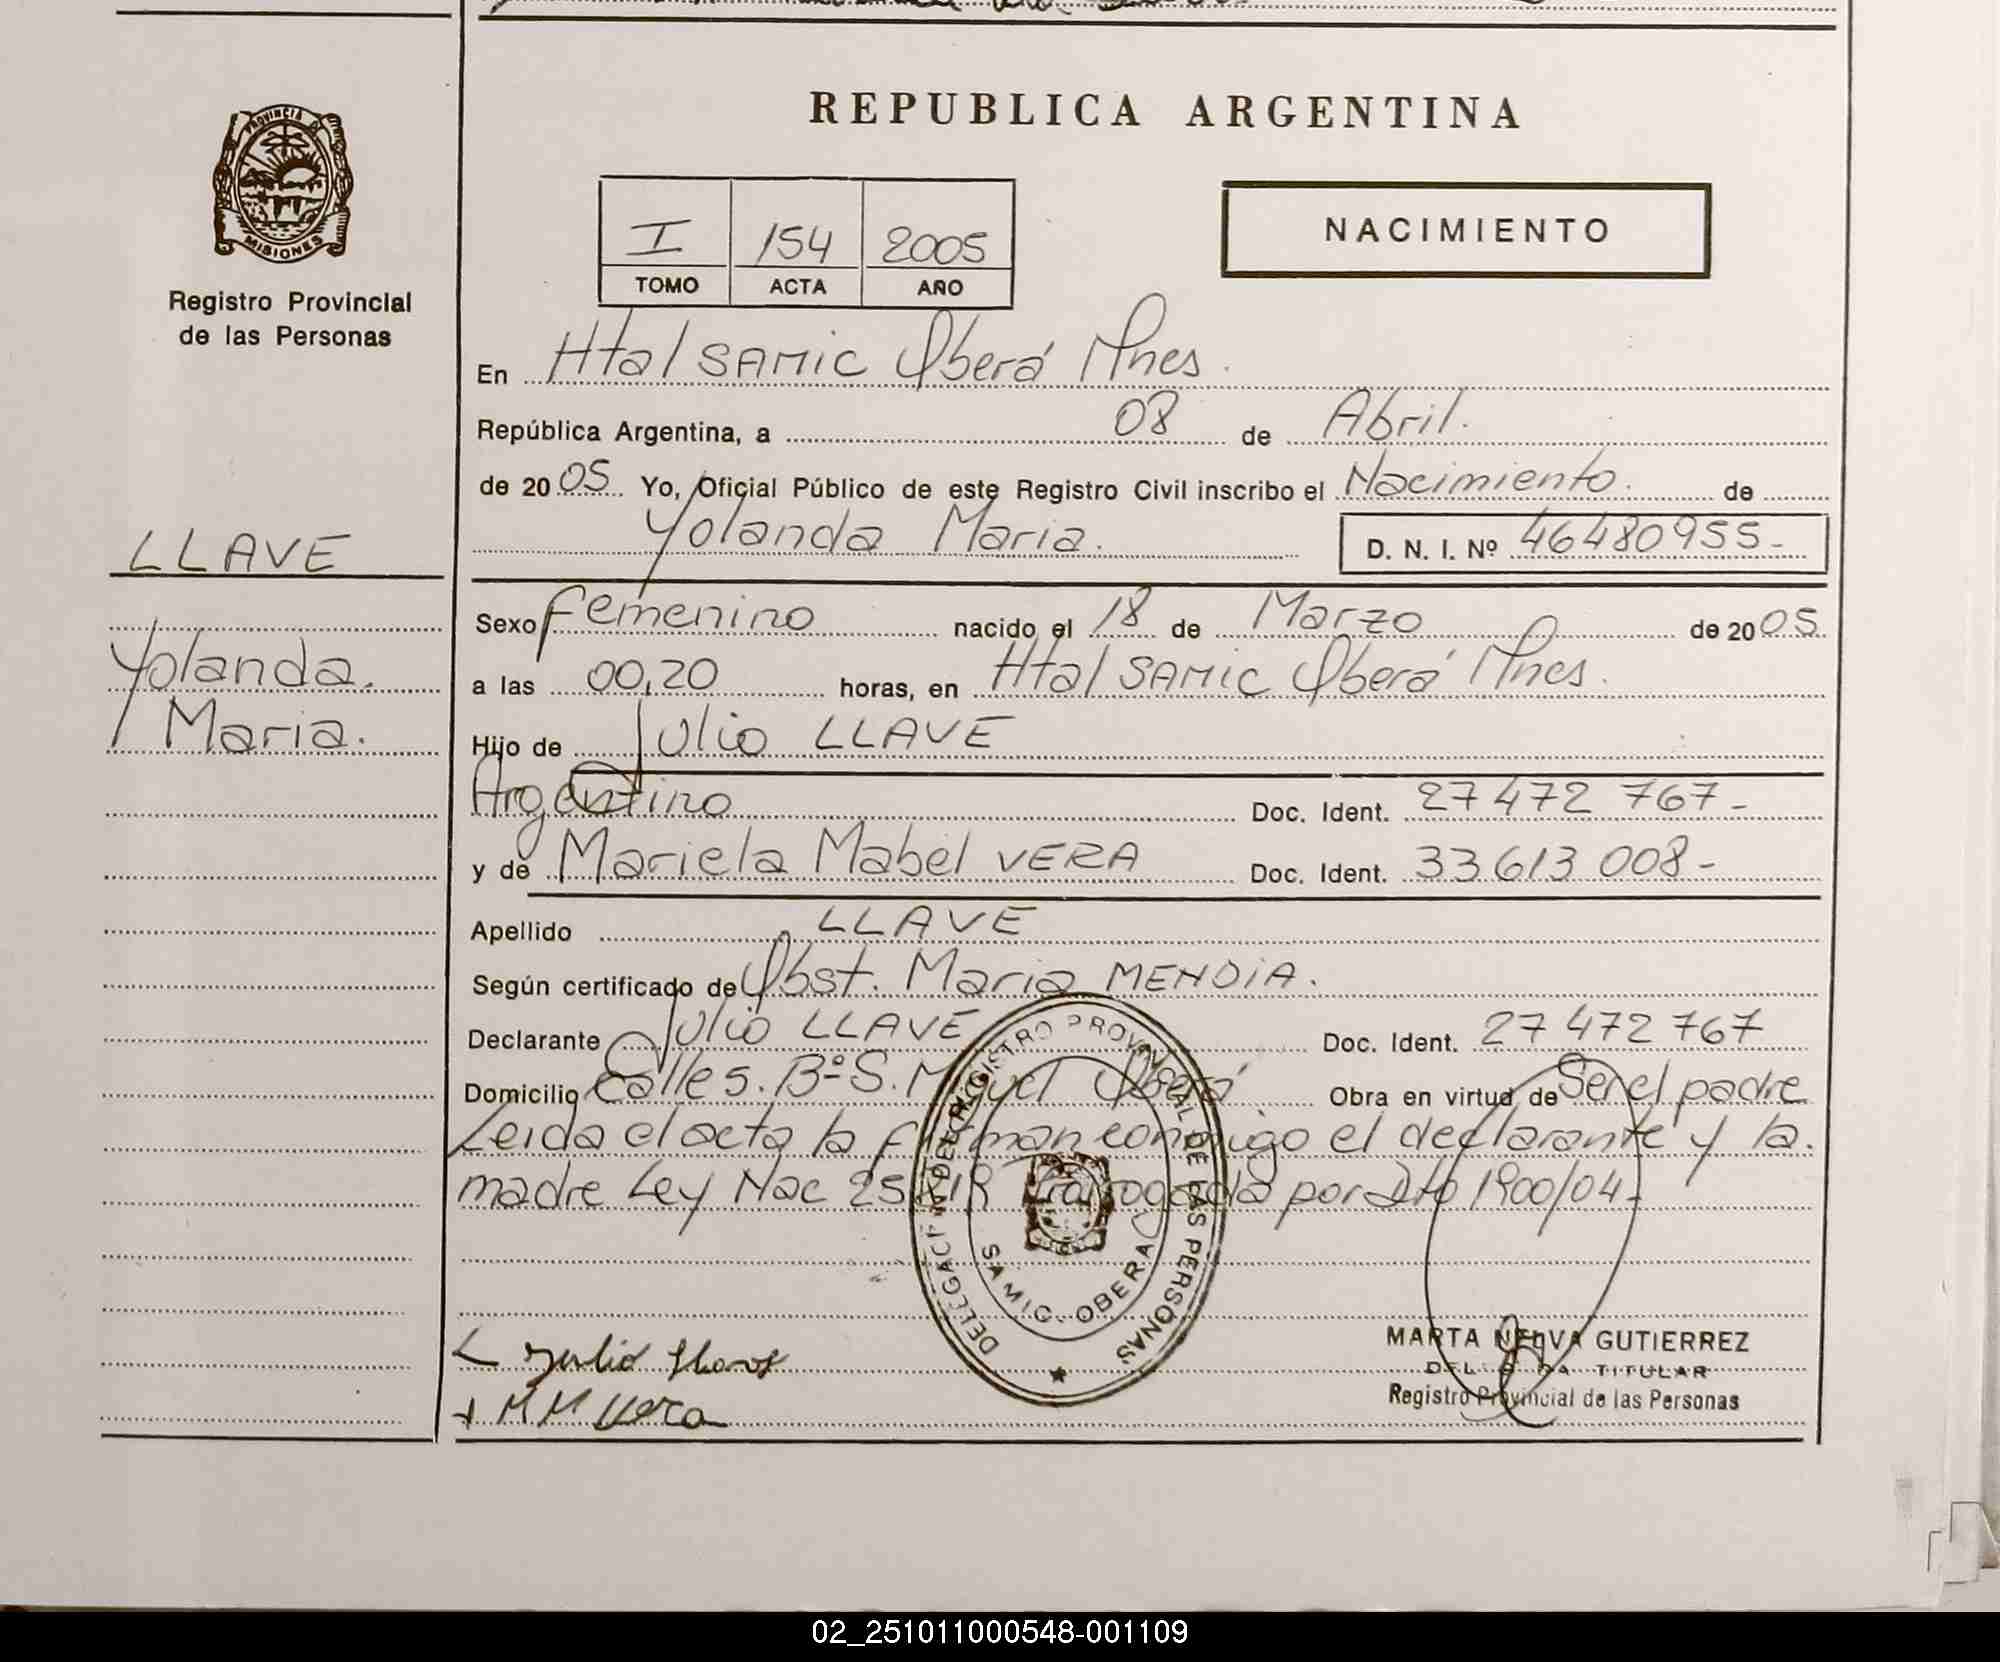 REPUBLICA ARGENTINA
PROVINCIA DE
MISIONES
Registro Provincial
de las Personas
I 154 2005
TOMO ACTA AÑO
NACIMIENTO
En Htal SAMIC Oberá Mnes.
República Argentina, a 08 de Abril.
de 2005 Yo, Oficial Público de este Registro Civil inscribo el Nacimiento. de
Yolanda Maria. D. N. I. Nº 46480955-
LLAVE
Yolanda.
Maria.
Sexo Femenino nacido el 18 de Marzo de 2005.
a las 00,20 horas, en Htal SAMIC Oberá Mnes.
Hijo de Julio LLAVE
Argentino Doc. Ident. 27 472 767-
y de Mariela Mabel VERA Doc. Ident. 33 613 008-
Apellido LLAVE
Según certificado de Obst. Maria MENDIA.
Declarante Julio LLAVE Doc. Ident. 27 472 767
Domicilio Calle s. Bº S. Miguel Oberá. Obra en virtud de Ser el padre
Leida el acta la firman conmigo el declarante y la.
madre Ley Nac por Dto 1900/04-
DELEGACION DEL REGISTRO PROVINCIAL DE LAS PERSONAS
SAMIC - OBERA
MM Vera
MARTA NELVA GUTIERREZ
DELEGADA TITULAR
Registro Provincial de las Personas
02_251011000548-001109